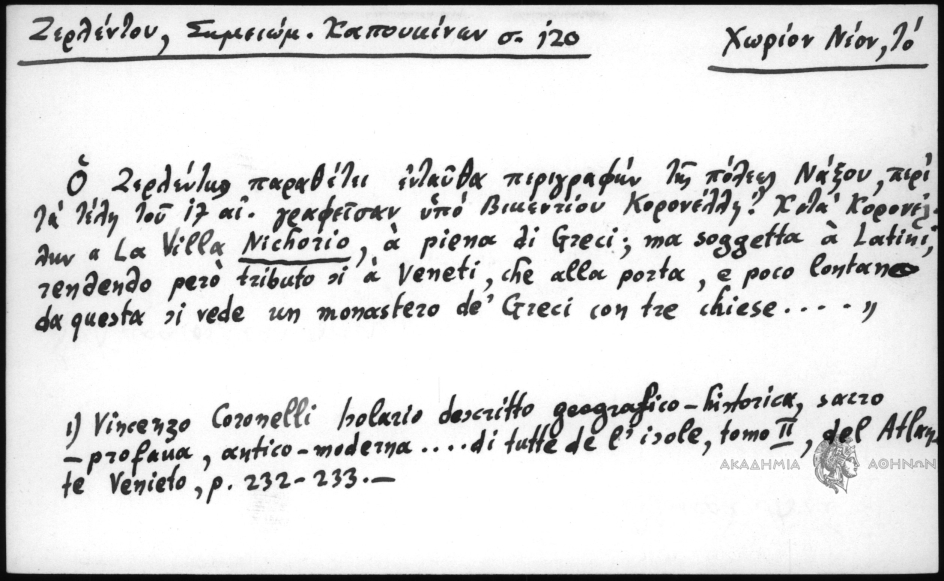 Ζερλέντου, Σημειώμ. Καπουκίνων σ. 120
Χωρίον Νέον, τό
Ὁ Ζερλέντης παραθέτει ἐνταῦθα περιγραφήν τῆς πόλεως Νάξου, περί
τά τέλη τοῦ 17 αἰ. γραφεῖσαν ὑπό Βικεντίου Κορονέλλη.¹ Κατά Κορονέλ-
λην « La Villa Nichorio, à piena di Greci; ma soggetta à Latini,
rendendo però tributo si à Veneti, che alla porta, e poco lontano
da questa si vede un monastero de' Greci con tre chiese . . . . »
1) Vincenzo Coronelli Isolario descritto geografico-historica, sacro
-profana, antico-moderna .... di tutte de l' isole, tomo II, del Atlan
te Venieto, p. 232-233.—
ΑΚΑΔΗΜΙΑ ΑΘΗΝΩΝ